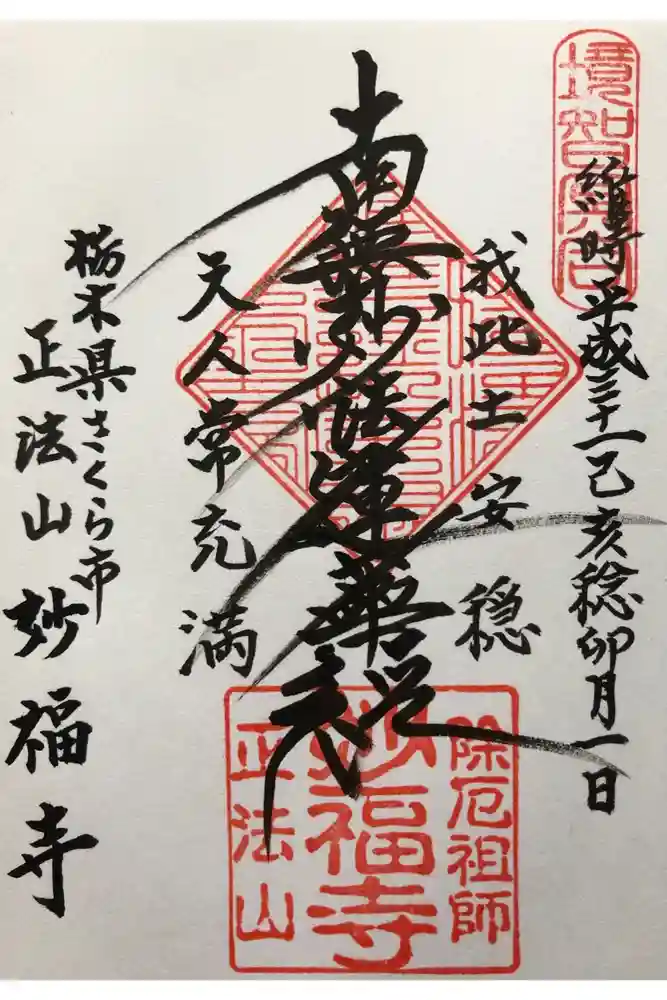 境智冥合
維時平成三十一己亥稔卯月一日
我此土安穏
南無妙法蓮華経
天人常充満
栃木県さくら市
正法山 妙福寺
除厄祖師
妙福寺
正法山